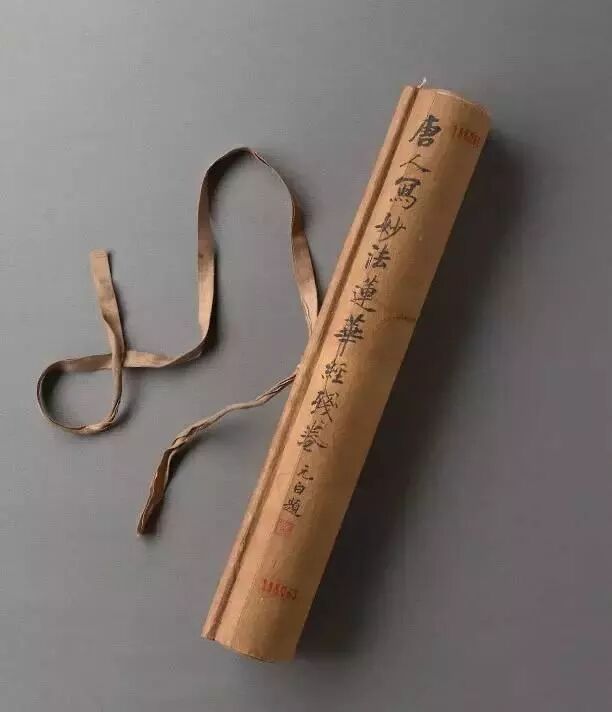 唐人寫妙法蓮華經殘卷
元白題